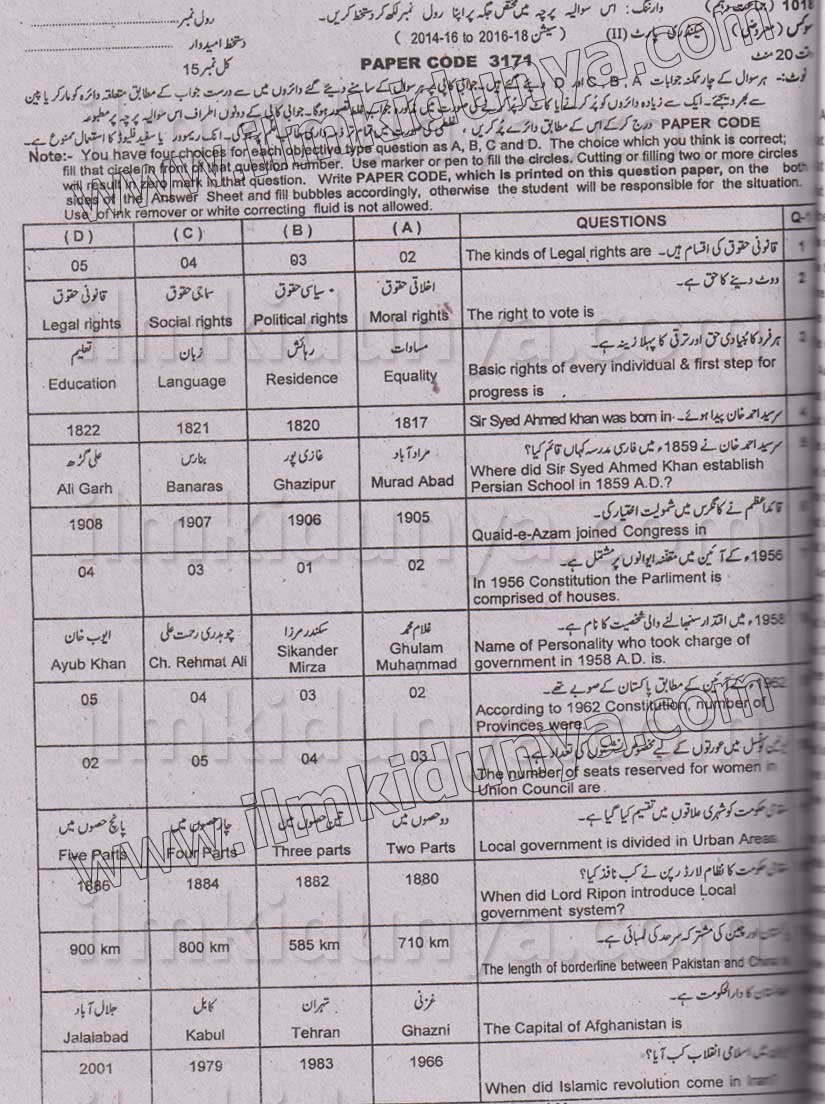 1018 (جماعت دہم) وارننگ: اس سوالیہ پرچہ میں مختص جگہ پر اپنا رول نمبر لکھ کر دستخط کریں۔ رول نمبر
سوکس (معروضی) سیکنڈری پارٹ (II) (سیشن 2014-16 to 2016-18) دستخط امیدوار
وقت 20 منٹ PAPER CODE 3171 کل نمبر 15
نوٹ:- ہر سوال کے چار ممکنہ جوابات A ، B ، C اور D دیئے گئے ہیں۔ جوابی کاپی پر ہر سوال کے سامنے دیئے گئے دائروں میں سے درست جواب کے مطابق متعلقہ دائرہ کو مارکر یا پین
سے بھر دیجئے۔ ایک سے زیادہ دائروں کو پُر کرنے یا کاٹ کر پُر کرنے کی صورت میں مذکورہ جواب غلط تصور ہوگا۔ جوابی کاپی کے دونوں اطراف اس سوالیہ پرچہ پر مطبوعہ
PAPER CODE درج کر کے اس کے مطابق دائرے پُر کریں، غلطی کی صورت میں تمام تر ذمہ داری طالب علم پر ہوگی۔ انک ریموور یا سفید فلیوڈ کا استعمال ممنوع ہے۔
Note:- You have four choices for each objective type question as A, B, C and D. The choice which you think is correct;
fill that circle in front of that question number. Use marker or pen to fill the circles. Cutting or filling two or more circles
will result in zero mark in that question. Write PAPER CODE, which is printed on this question paper, on the both
sides of the Answer Sheet and fill bubbles accordingly, otherwise the student will be responsible for the situation.
Use of ink remover or white correcting fluid is not allowed.
(D) (C) (B) (A) QUESTIONS Q-1
05 04 03 02 The kinds of Legal rights are قانونی حقوق کی اقسام ہیں۔ 1
قانونی حقوق سماجی حقوق سیاسی حقوق اخلاقی حقوق ووٹ دینے کا حق ہے۔ 2
Legal rights Social rights Political rights Moral rights The right to vote is
تعلیم زبان رہائش مساوات ہر فرد کا بنیادی حق اور ترقی کا پہلا زینہ ہے۔ 3
Education Language Residence Equality Basic rights of every individual & first step for
progress is
1822 1821 1820 1817 Sir Syed Ahmed khan was born in سرسید احمد خان پیدا ہوئے۔ 4
علی گڑھ بنارس غازی پور مراد آباد سرسید احمد خان نے 1859ء میں فارسی مدرسہ کہاں قائم کیا؟ 5
Ali Garh Banaras Ghazipur Murad Abad Where did Sir Syed Ahmed Khan establish
Persian School in 1859 A.D.?
1908 1907 1906 1905 قائداعظم نے کانگرس میں شمولیت اختیار کی۔
Quaid-e-Azam joined Congress in
04 03 01 02 1956ء کے آئین میں مقننہ ایوانوں پر مشتمل ہے۔
In 1956 Constitution the Parliment is
comprised of houses.
ایوب خان چوہدری رحمت علی سکندر مرزا غلام محمد 1958ء میں اقتدار سنبھالنے والی شخصیت کا نام ہے۔
Ayub Khan Ch. Rehmat Ali Sikander Mirza Ghulam Muhammad Name of Personality who took charge of
government in 1958 A.D. is.
05 04 03 02 1962ء کے آئین کے مطابق پاکستان کے صوبے تھے۔
According to 1962 Constitution, number of
Provinces were
02 05 04 03 یونین کونسل میں عورتوں کے لیے مخصوص نشستوں کی تعداد ہے۔
The number of seats reserved for women in
Union Council are
پانچ حصوں میں چار حصوں میں تین حصوں میں دو حصوں میں حکومت کو شہری علاقوں میں تقسیم کیا گیا ہے۔
Five Parts Four Parts Three parts Two Parts Local government is divided in Urban Areas
1886 1884 1882 1880 حکومت کا نظام لارڈ رپن نے کب نافذ کیا؟
When did Lord Ripon introduce Local
government system?
900 km 800 km 585 km 710 km اور چین کی مشترکہ سرحد کی لمبائی ہے۔
The length of borderline between Pakistan and China
جلال آباد کابل تہران غزنی کا دارالحکومت ہے۔
Jalalabad Kabul Tehran Ghazni The Capital of Afghanistan is
2001 1979 1983 1966 میں اسلامی انقلاب کب آیا؟
When did Islamic revolution come in Iran?
www.ilmkidunya.com
www.ilmkidunya.com
ilmkidunya.com
ilmkidunya.com
ilmkidunya.com
ilmkidunya.com
ilmkidunya.com